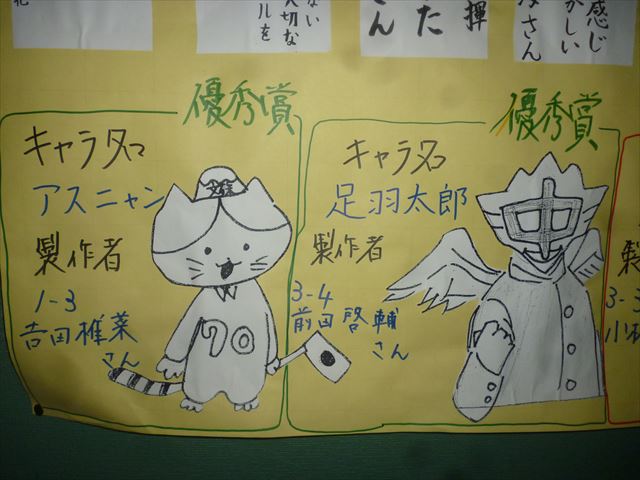 ない
大切な
ルを
揮
た
ん
感じ
かしい
さん
優秀賞
キャラ名
アスニャン
製作者
1-3
吉田椎菜
さん
70
優秀賞
キャラ名
足羽太郎
製作者
3-4
前田啓輔
さん
中
製
3-3
小